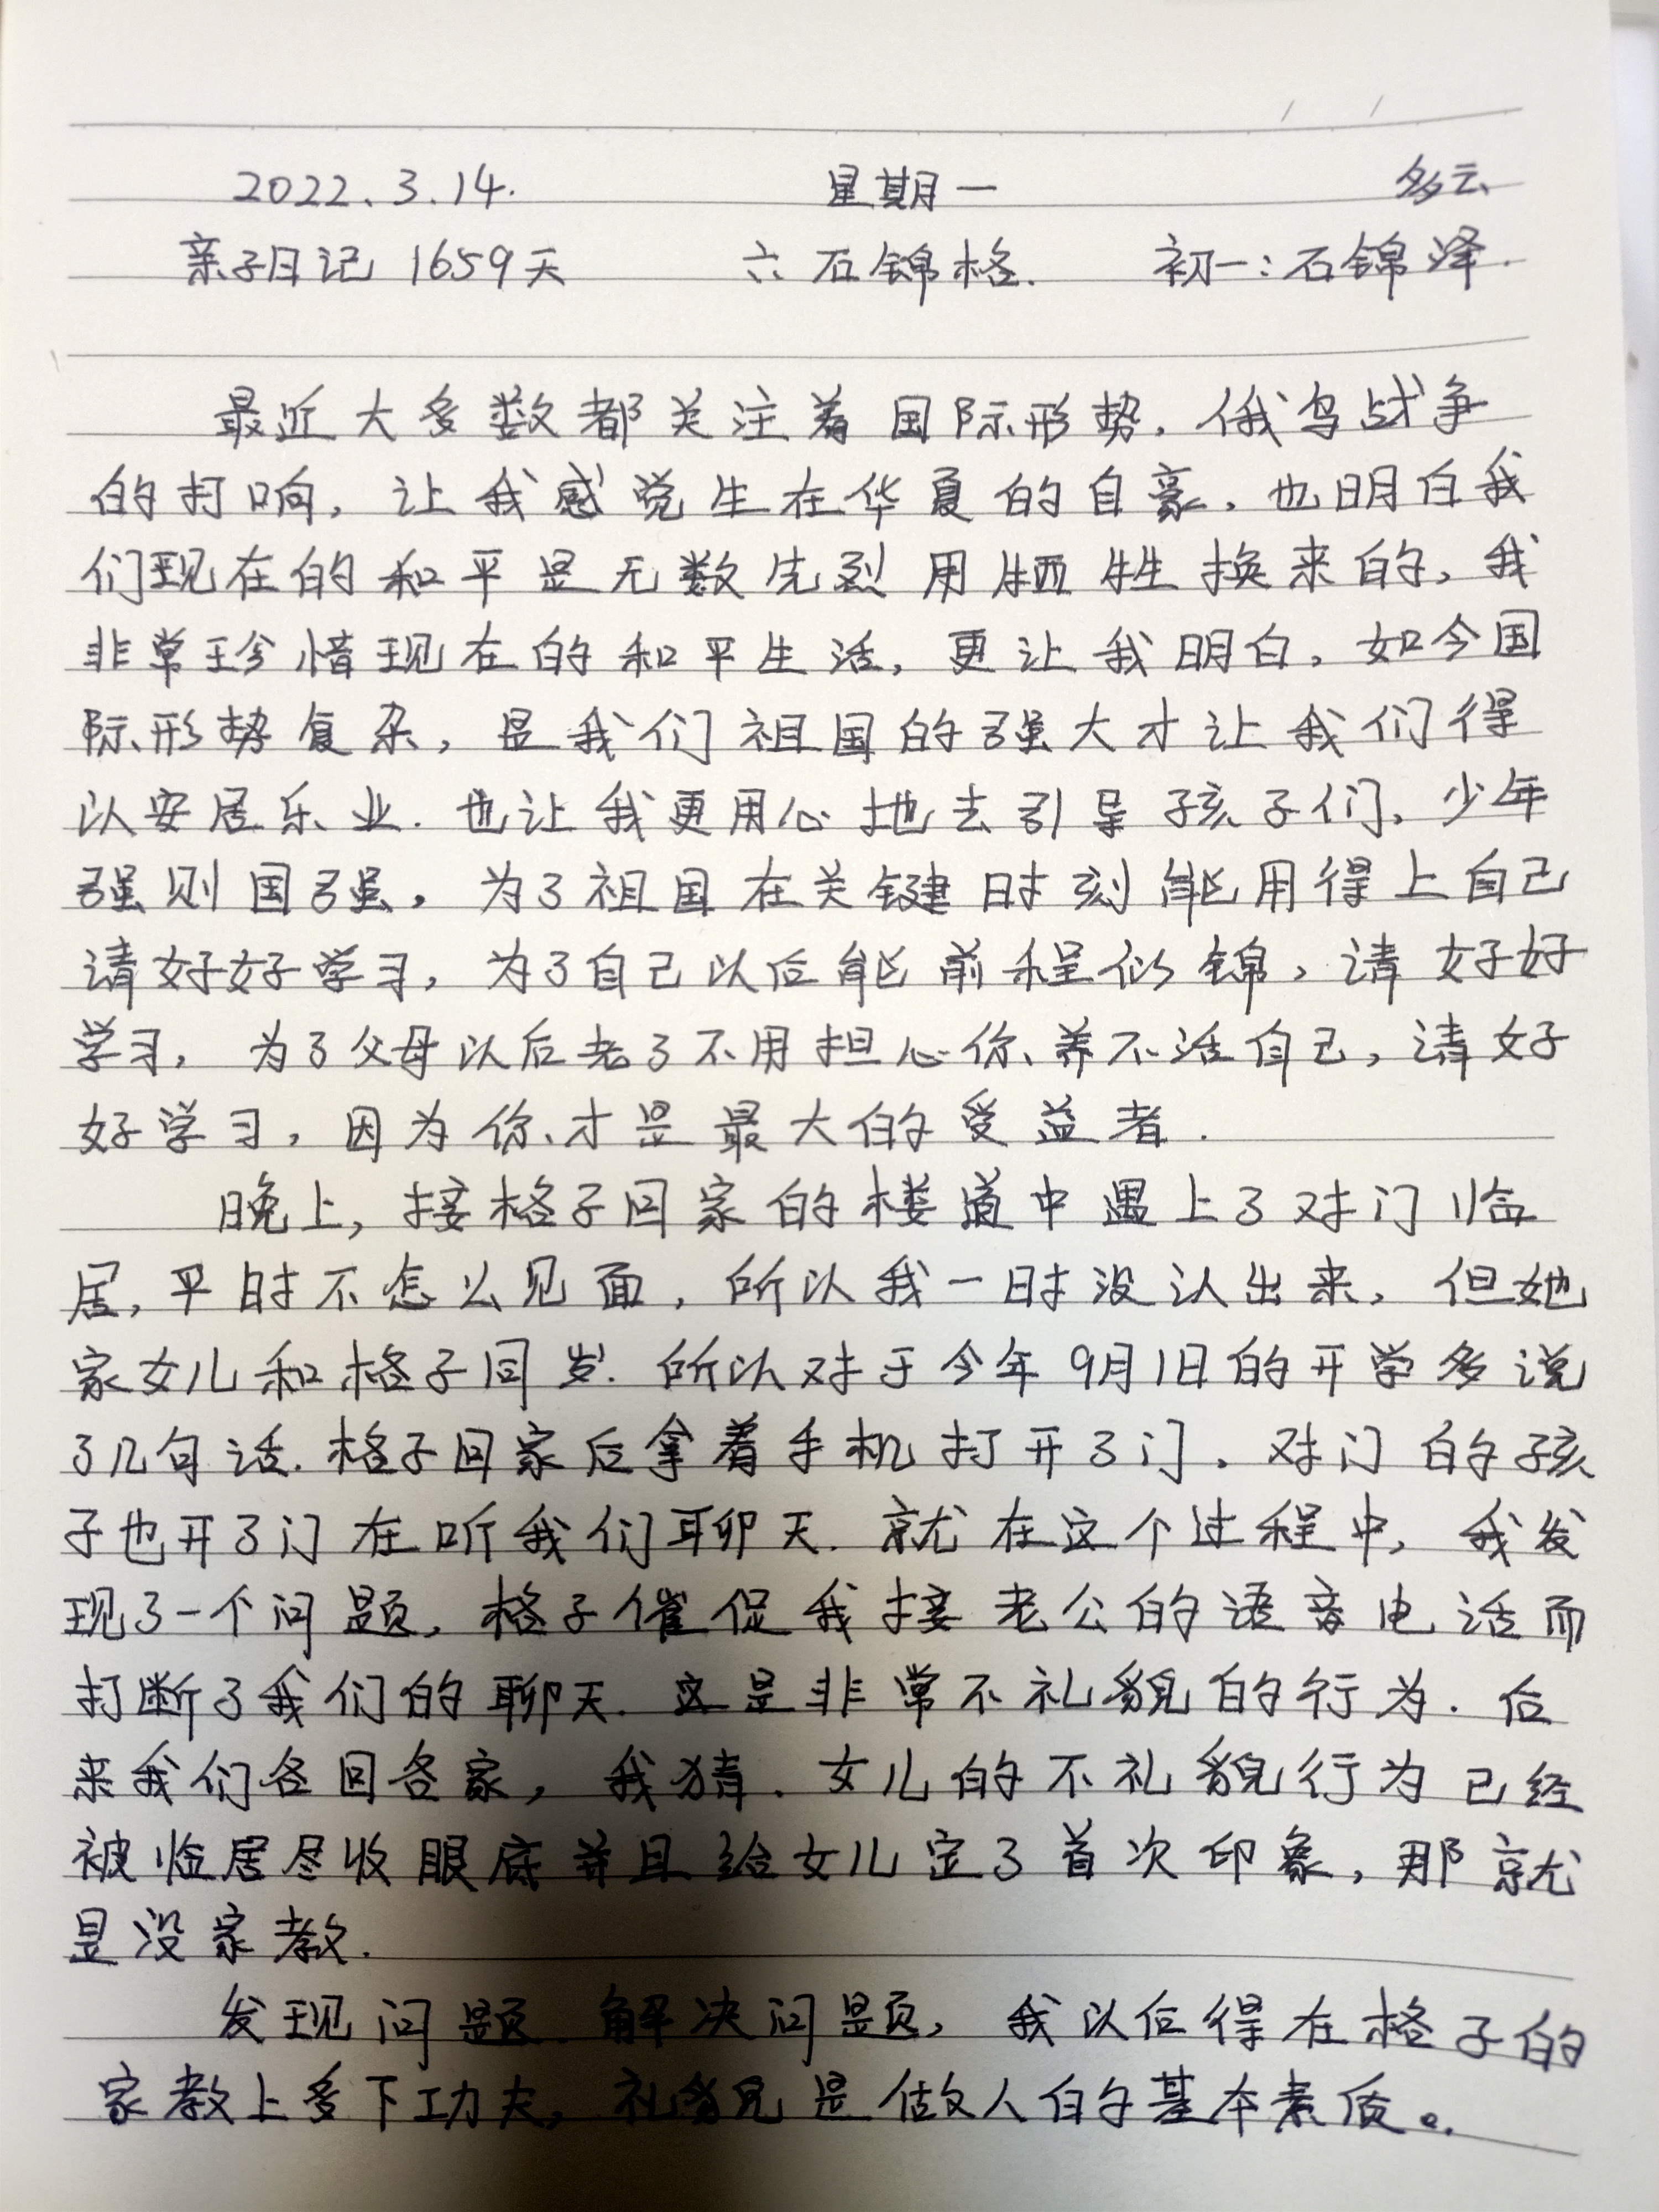 2022.3.14. 星期一 多云
亲子日记 1659天 六 石锦格. 初一:石锦泽.
最近大多数都关注着国际形势.俄乌战争
的打响,让我感觉生在华夏的自豪.也明白我
们现在的和平是无数先烈用牺牲换来的,我
非常珍惜现在的和平生活,更让我明白,如今国
际形势复杂,是我们祖国的强大才让我们得
以安居乐业.也让我更用心地去引导孩子们.少年
强则国强,为了祖国在关键时刻能用得上自己
请好好学习,为了自己以后能前程似锦,请好好
学习,为了父母以后老了不用担心你养不活自己,请好
好学习,因为你才是最大的受益者.
晚上,接格子回家的楼道中遇上了对门临
居,平时不怎么见面,所以我一时没认出来,但她
家女儿和格子同岁.所以对于今年9月1日的开学多说
了几句话.格子回家后拿着手机打开了门.对门的孩
子也开了门在听我们聊天.就在这个过程中,我发
现了一个问题,格子催促我接老公的语音电话而
打断了我们的聊天.这是非常不礼貌的行为.后
来我们各回各家,我猜.女儿的不礼貌行为已经
被临居尽收眼底并且给女儿定了首次印象,那就
是没家教.
发现问题.解决问题,我以后得在格子的
家教上多下工夫,礼貌是做人的基本素质。